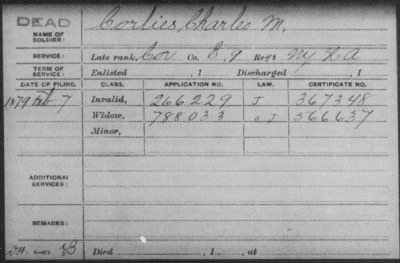 DEAD
NAME OF SOLDIER: Corlies, Charles M.
SERVICE: Late rank, Cor Co. E, 9 Reg't NY H A
TERM OF SERVICE: Enlisted , 1 Discharged , 1
DATE OF FILING. CLASS. APPLICATION NO. LAW. CERTIFICATE NO.
1879 Feb 7 Invalid, 266229 J 367348
Widow, 788033 J 566637
Minor,
ADDITIONAL SERVICES:
REMARKS:
Died , 1 , at